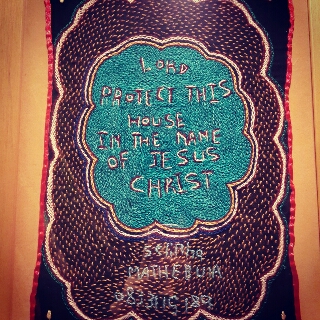 LORD
PROTECT THIS
HOUSE
IN THE NAME
OF JESUS
CHRIST
MATHEBULA